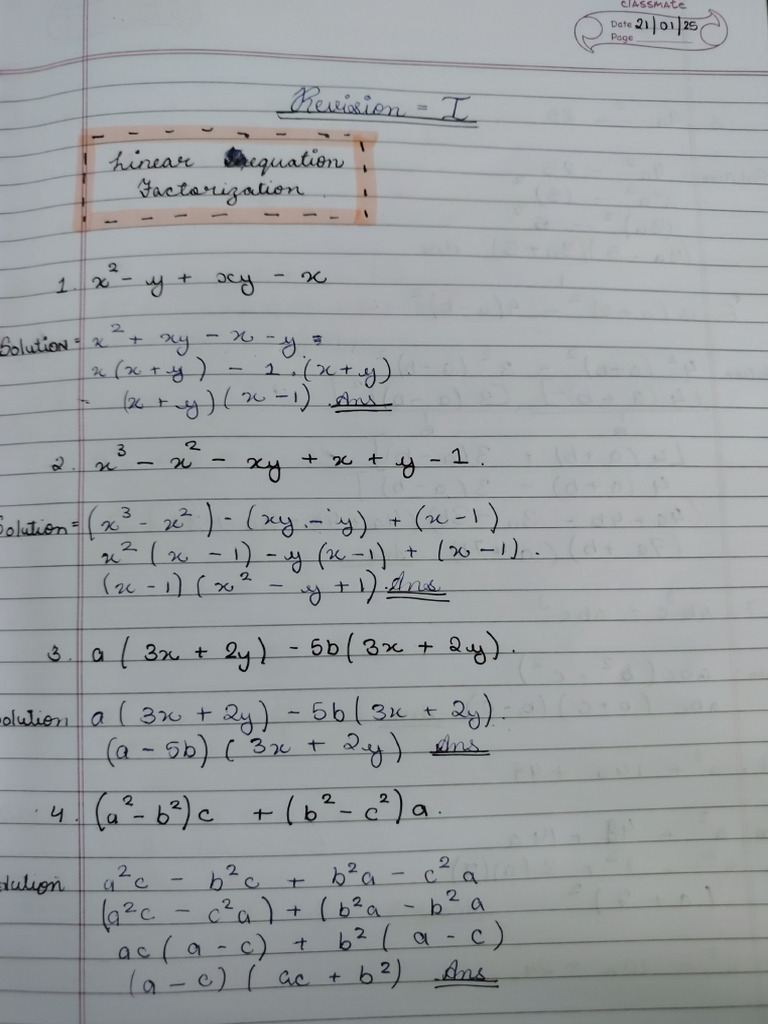 CLASSMATE
Date 21/01/25
Page
Revision = I
Linear equation
Factorization
1. x² - y + xy - x
Solution = x² + xy - x - y =
x(x + y) - 1.(x + y).
- (x + y)(x - 1) Ans
2. x³ - x² - xy + x + y - 1.
Solution = (x³ - x²) - (xy - y) + (x - 1)
x²(x - 1) - y(x - 1) + (x - 1).
(x - 1)(x² - y + 1). Ans
3. a(3x + 2y) - 5b(3x + 2y).
olution a(3x + 2y) - 5b(3x + 2y).
(a - 5b)(3x + 2y) Ans
4. (a² - b²)c + (b² - c²)a.
olution a²c - b²c + b²a - c²a
(a²c - c²a) + (b²a - b²a
ac(a - c) + b²(a - c)
(a - c)(ac + b²) Ans